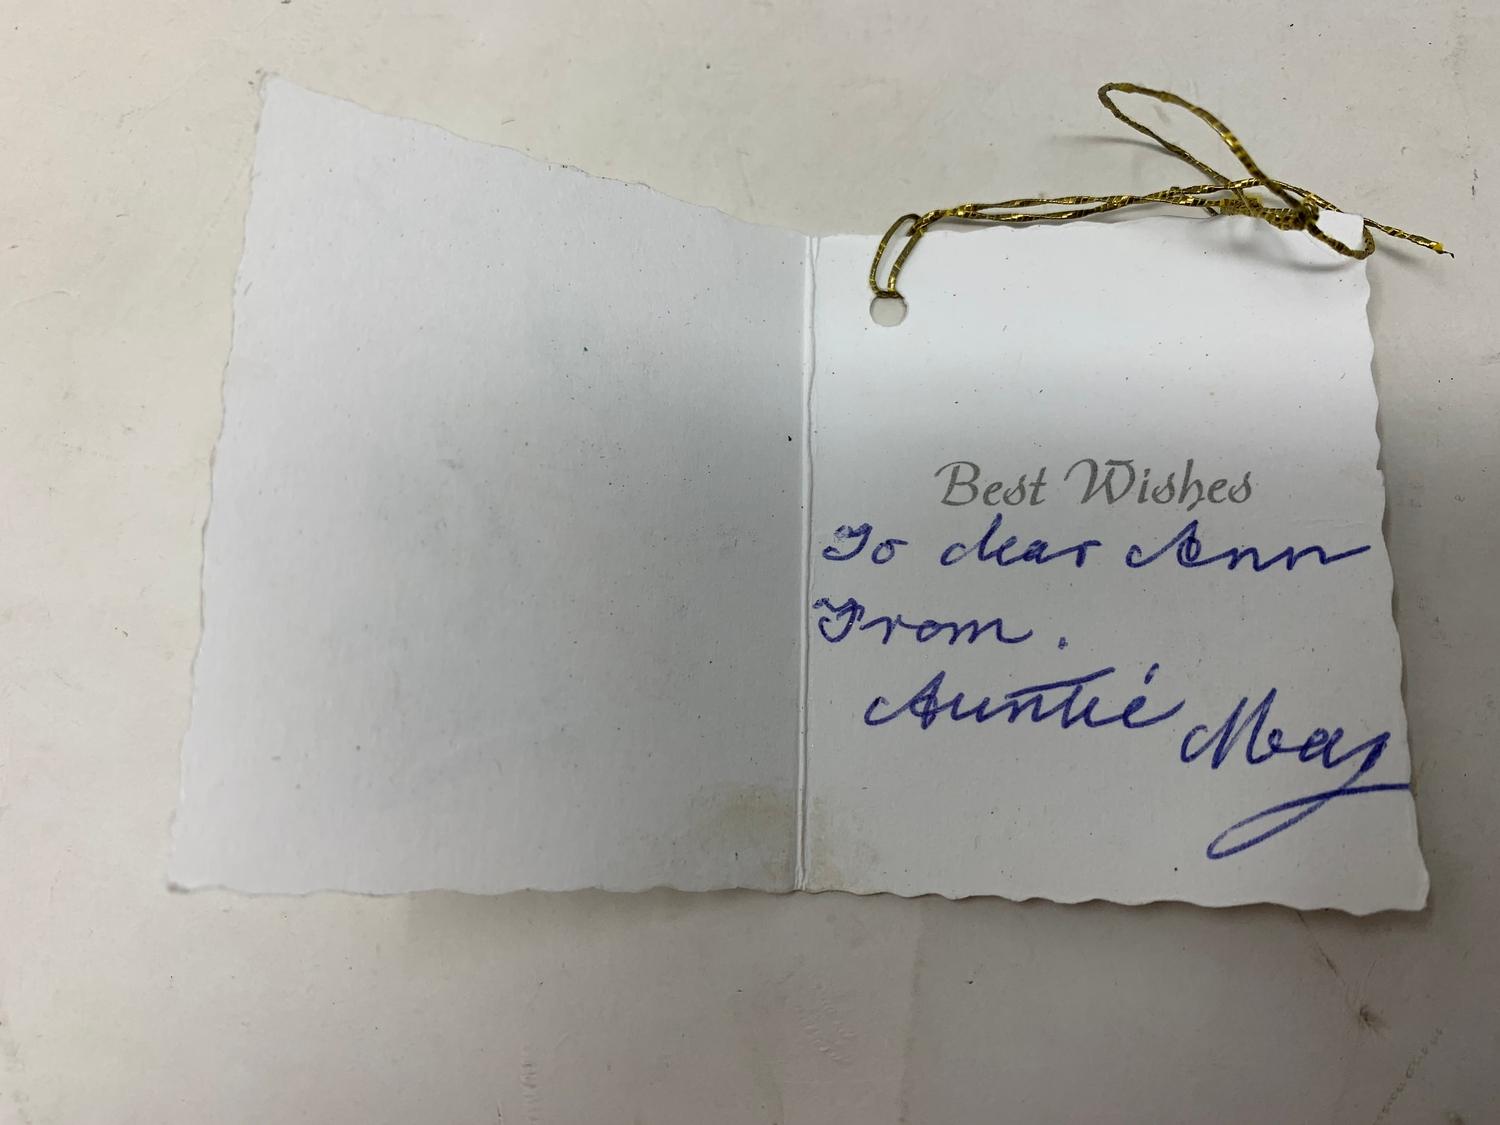 Best Wishes
To dear Ann
From.
Auntie May